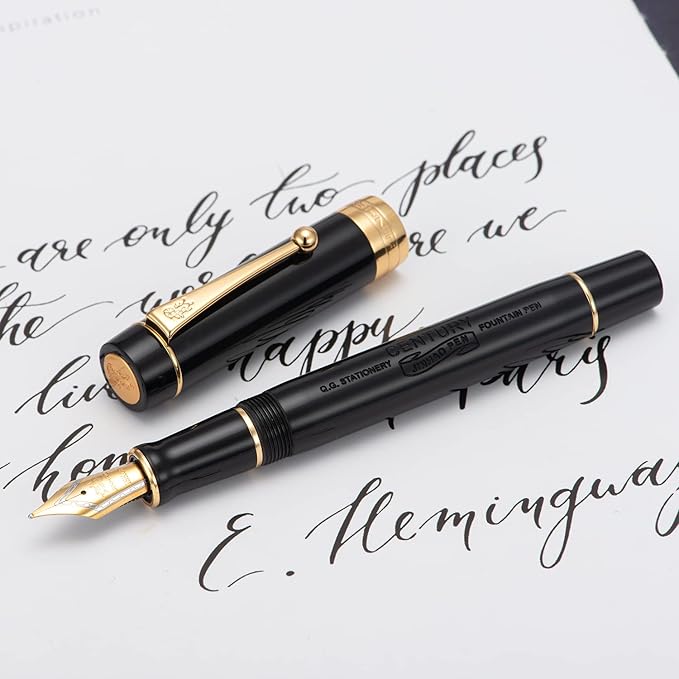 piration
are only two places
the wor re we
li happy
Paris
hom
E. Hemingway
CENTURY
JINHAO PEN
Q.G. STATIONERY
FOUNTAIN PEN